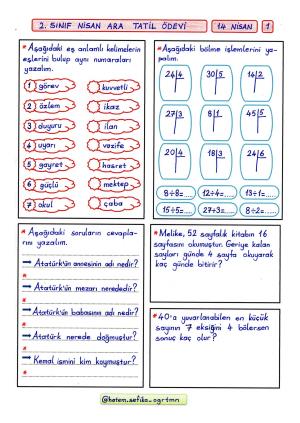 2. SINIF NİSAN ARA TATİL ÖDEVİ
14 NİSAN
1
*Aşağıdaki eş anlamlı kelimelerin
eşlerini bulup aynı numaraları
yazalım.
1 görev
kuvvetli
2 özlem
ikaz
3 duyuru
ilan
4 uyarı
vazife
5 gayret
hasret
6 güçlü
mektep
7 okul
çaba
*Aşağıdaki bölme işlemlerini ya-
palım.
24 4
30 5
14 2
27 3
8 1
45 5
20 4
18 3
24 6
8÷8=.....
12÷4=.....
13÷1=.....
15÷5=.....
27÷3=.....
8÷2=.....
*Aşağıdaki soruların cevapla-
rını yazalım.
→ Atatürk'ün annesinin adı nedir?
→ Atatürk'ün mezarı nerededir?
→ Atatürk'ün babasının adı nedir?
→ Atatürk nerede doğmuştur?
→ Kemal ismini kim koymuştur?
*Melike, 52 sayfalık kitabın 16
sayfasını okumuştur. Geriye kalan
sayfaları günde 4 sayfa okuyarak
kaç günde bitirir?
*40'a yuvarlanabilen en küçük
sayının 7 eksiğini 4 bölersen
sonuç kaç olur?
@hatem.sefika_ogrtmn